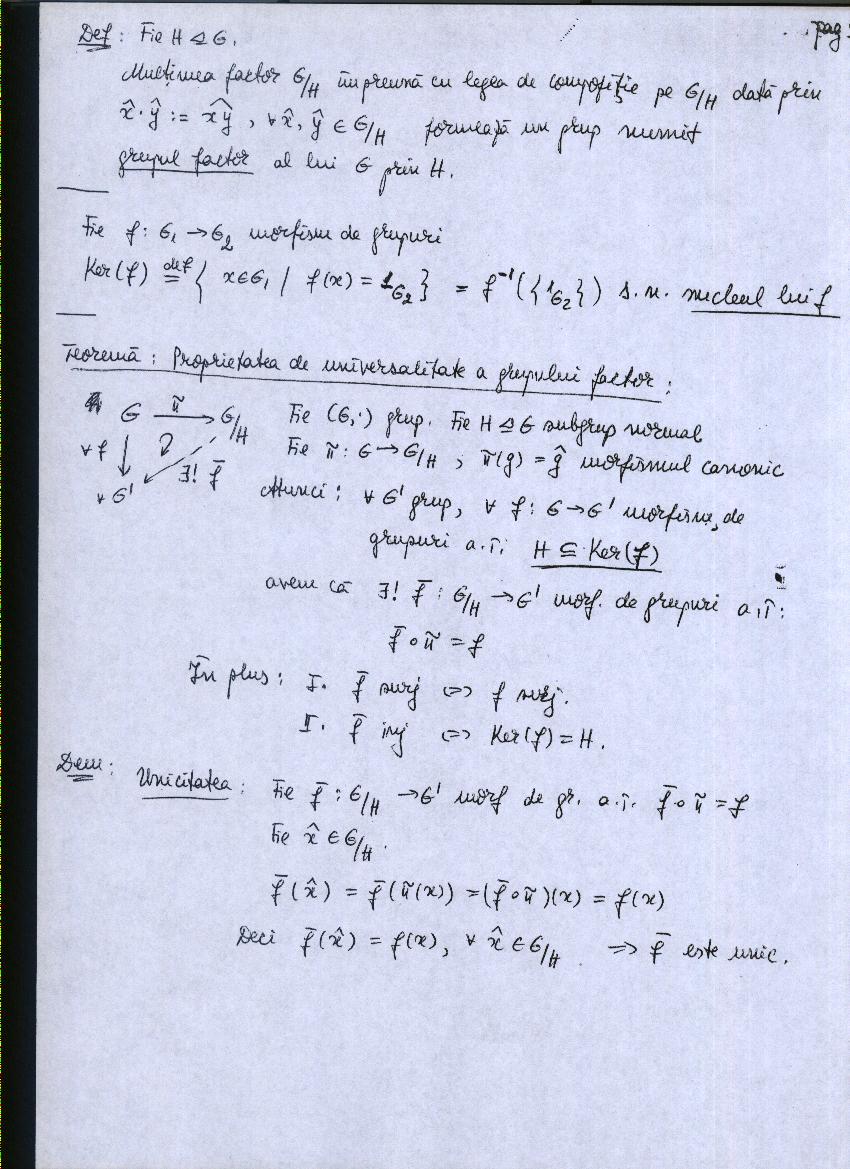 Def: Fie H ⊴ G.
pag
Mulțimea factor G/H împreună cu legea de compoziție pe G/H dată prin
x̂·ŷ := x͡y, ∀ x̂, ŷ ∈ G/H formează un grup numit
grupul factor al lui G prin H.
Fie f: G₁ → G₂ morfism de grupuri
Ker(f) def= { x∈G₁ / f(x) = 1_G₂ } = f⁻¹({1_G₂}) s.n. nucleul lui f
Teoremă: Proprietatea de universalitate a grupului factor:
G π̃→ G/H Fie (G,·) grup. Fie H ⊴ G subgrup normal
∀f ↓ ∃! f̄ Fie π̃: G → G/H, π̃(g) = ĝ morfismul canonic
∀ G' Atunci: ∀ G' grup, ∀ f: G → G' morfism de
grupuri a.î. H ⊆ Ker(f)
avem că ∃! f̄: G/H → G' morf. de grupuri a.î:
f̄ ∘ π̃ = f
În plus: I. f̄ surj ⇔ f surj.
II. f̄ inj ⇔ Ker(f) = H.
Dem: Unicitatea: Fie f̄: G/H → G' morf de gr. a.î. f̄ ∘ π̃ = f
Fie x̂ ∈ G/H.
f̄(x̂) = f̄(π̃(x)) = (f̄ ∘ π̃)(x) = f(x)
Deci f̄(x̂) = f(x), ∀ x̂ ∈ G/H ⇒ f̄ este unic.